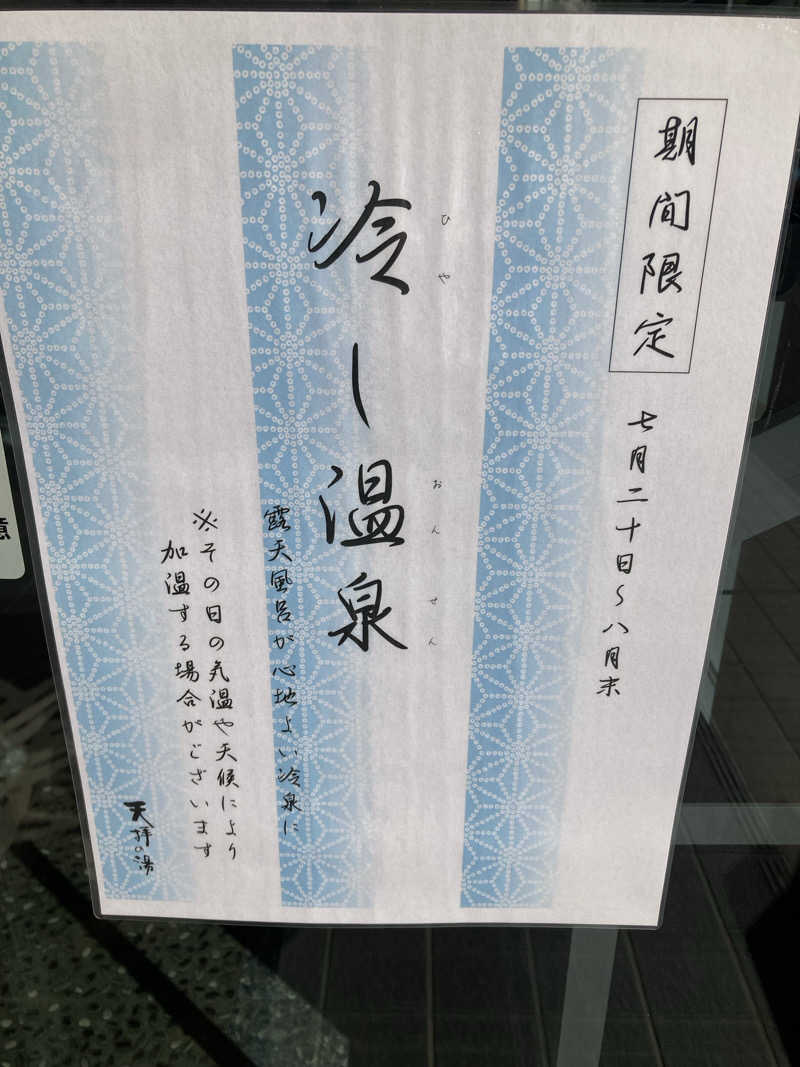 期間限定
七月二十日～八月末
ひや
おんせん
冷し温泉
露天風呂が心地よい冷泉に
※その日の気温や天候により
加温する場合がございます
天拝の湯
意